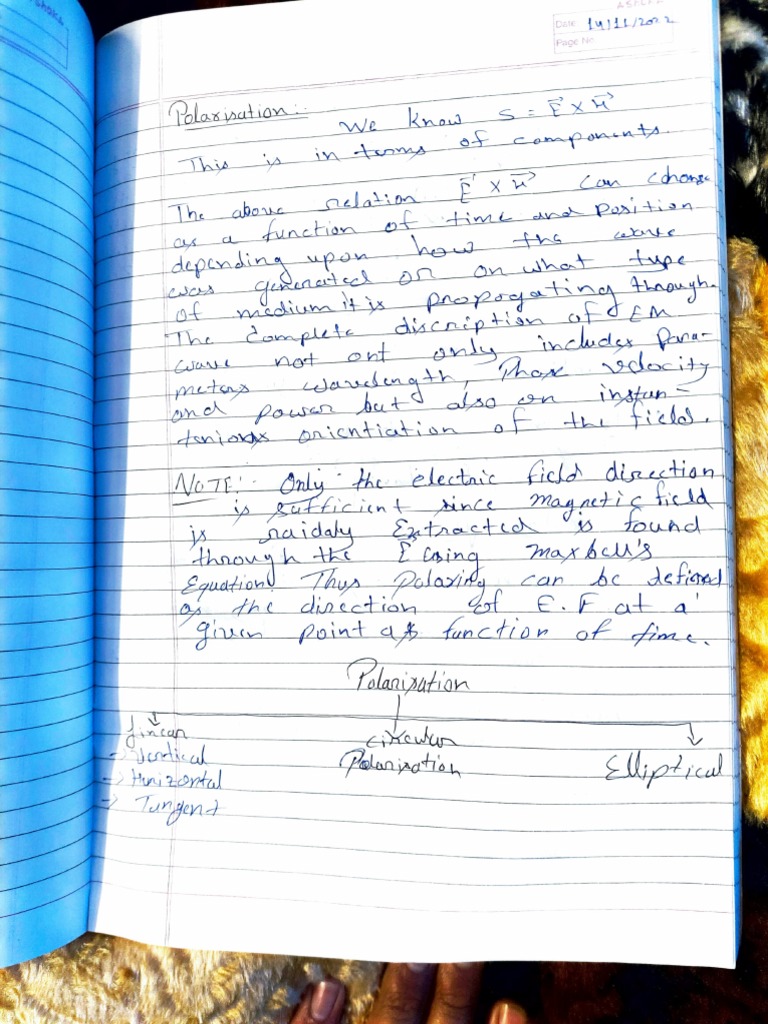 Date 14/11/2022
Page No
Polarisation:-
We know S = E⃗ x H⃗
This is in terms of components.
The above relation E⃗ x H⃗ can change
as a function of time and position
depending upon how the wave
was generated or on what type
of medium it is propogating through.
The complete discription of EM
wave not ont only includes para-
meters wavelength, Phase velocity
and power but also on instan-
tanious orientiation of the field.
NOTE:- Only the electric field direction
is sufficient since magnetic field
is raidaly Extracted is found
through the E using maxbell's
Equation. Thus polaxing can be defined
as the direction of E.F at a
given point as function of time.
Polarisation
linear
→ Vertical
→ Horizontal
→ Tangent
circular
Polarisation
Elliptical